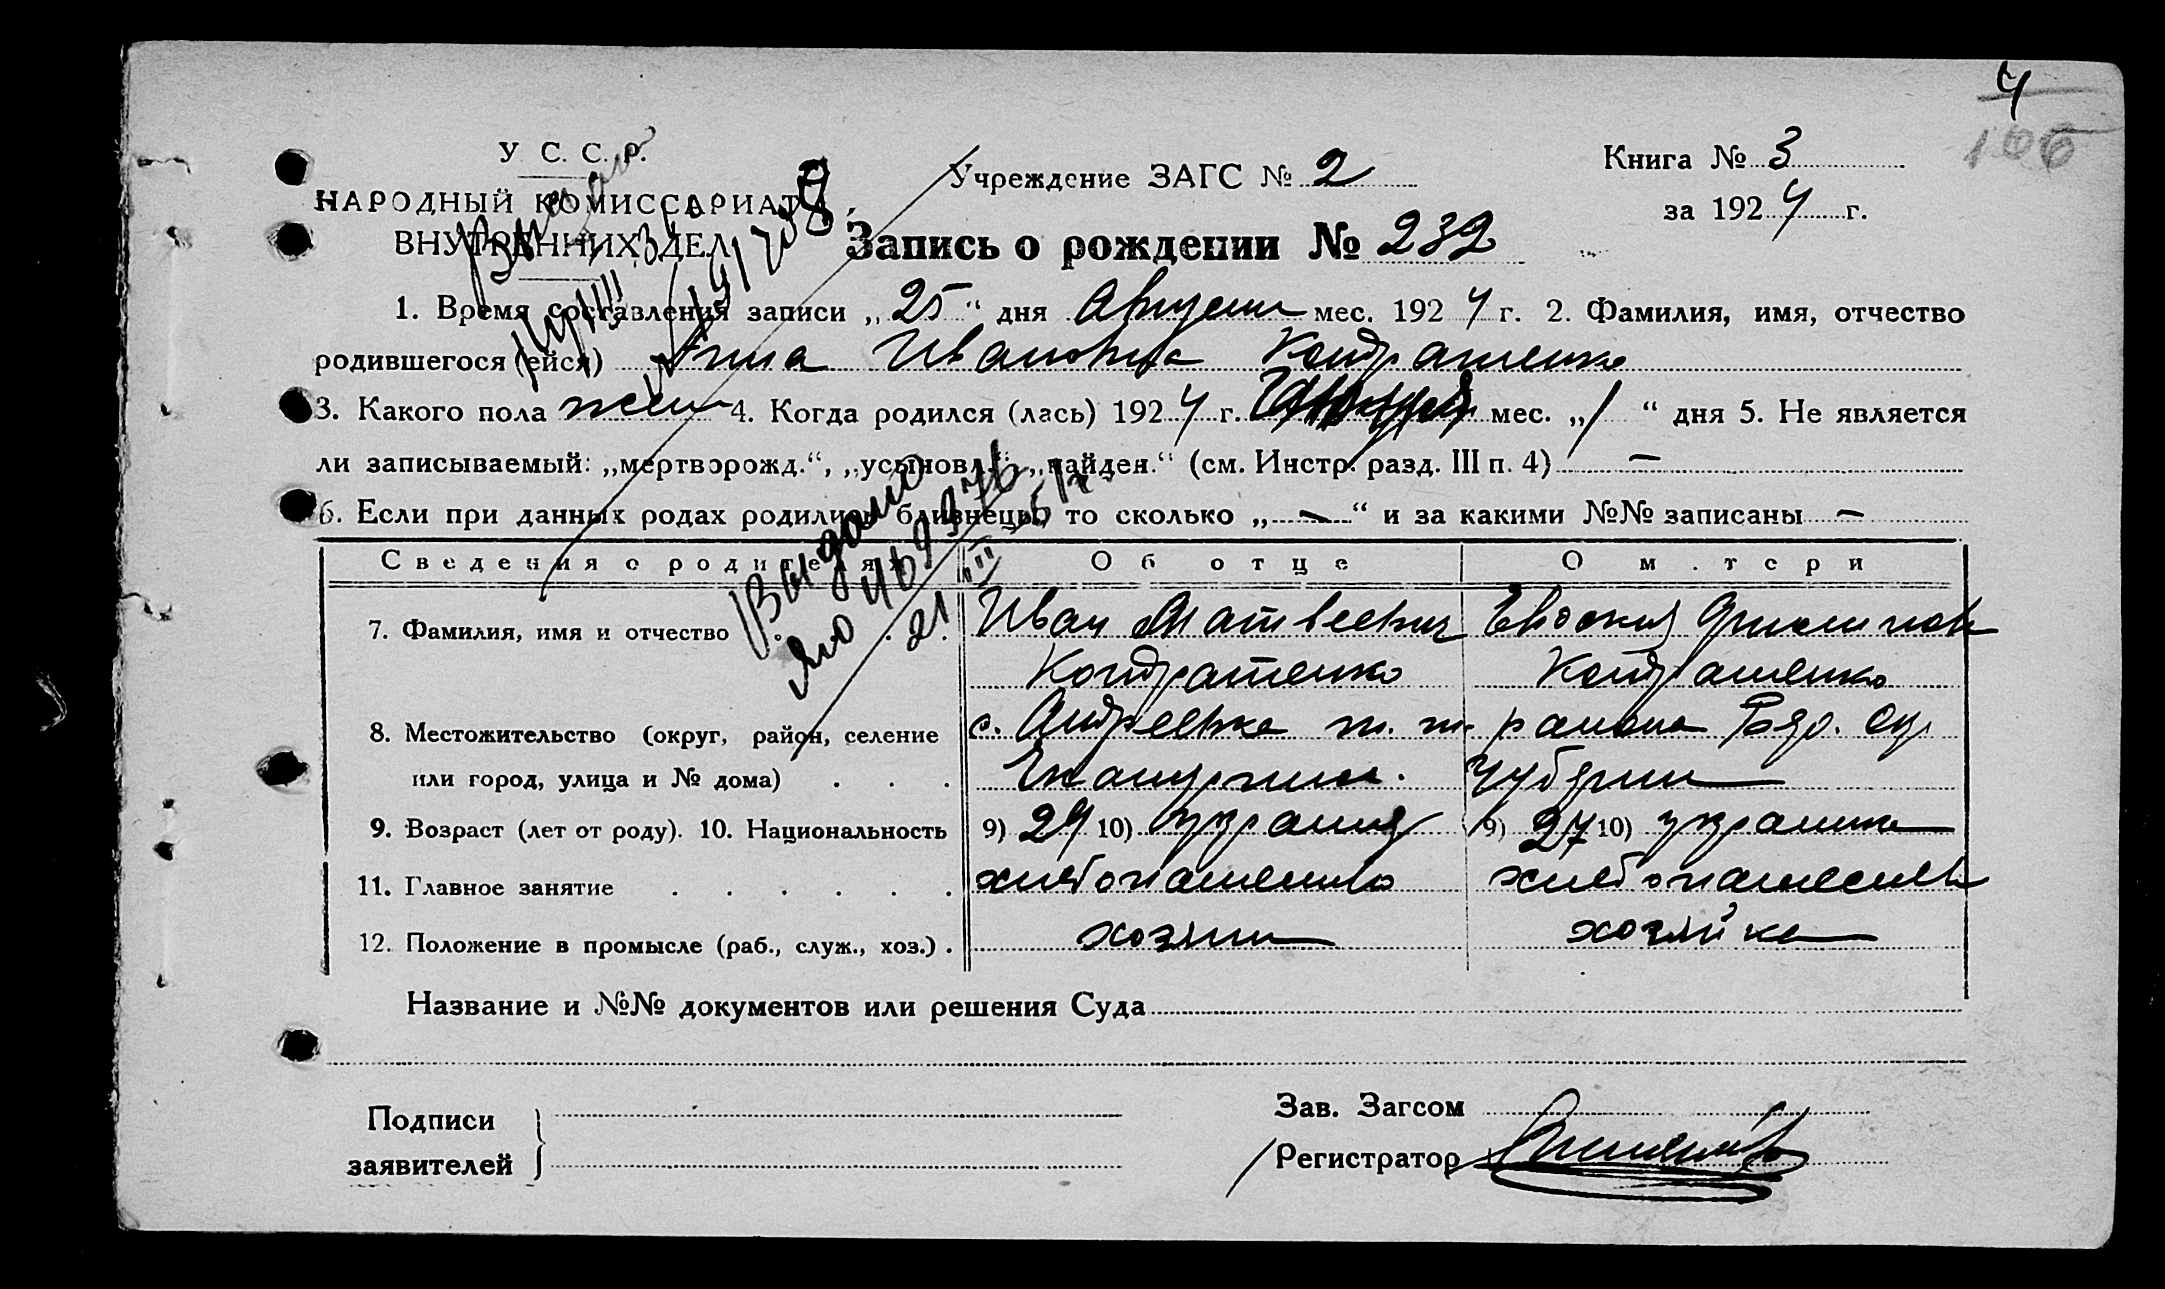 4
106
У С. С. Р.
НАРОДНЫЙ КОМИССАРИАТ
ВНУТРЕННИХ ДЕЛ
Учреждение ЗАГС № 2
Книга № 3
за 1924 г.
Запись о рождении № 232
1. Время составления записи „25“ дня Августа мес. 1924 г. 2. Фамилия, имя, отчество
родившегося (ейся) Анна Ивановна Кондратенко
3. Какого пола жен 4. Когда родился (лась) 1924 г. мес. „1“ дня 5. Не является
ли записываемый: „мертворожд.“, „усыновл.“ „найден.“ (см. Инстр. разд. III п. 4) —
6. Если при данных родах родились близнецы, то сколько „—“ и за какими №№ записаны —
Выдано
21 III 51 г.
Сведения о родителях Об отце О м.тери
7. Фамилия, имя и отчество Иван Матвеевич Евдокия
Кондратенко Кондратенко
8. Местожительство (округ, район, селение с. Андреевка района
или город, улица и № дома) Екатерин. Губернии
9. Возраст (лет от роду). 10. Национальность 9) 29 10) украинец 9) 27 10) украинка
11. Главное занятие хлебопашество хлебопашество
12. Положение в промысле (раб., служ., хоз.) хозяин хозяйка
Название и №№ документов или решения Суда
Подписи
заявителей
Зав. Загсом
Регистратор